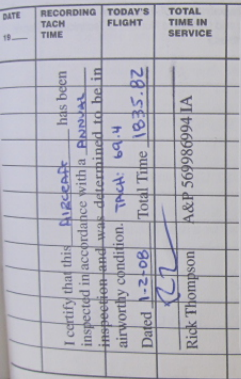 DATE
19
RECORDING
TACH
TIME
TODAY'S
FLIGHT
TOTAL
TIME IN
SERVICE
I certify that this AIRCRAFT has been
inspected in accordance with a ANNUAL
inspection and was determined to be in
airworthy condition. TACH: 69.4
Dated 1-2-08 Total Time 1835.82
Rick Thompson A&P 569986994 IA